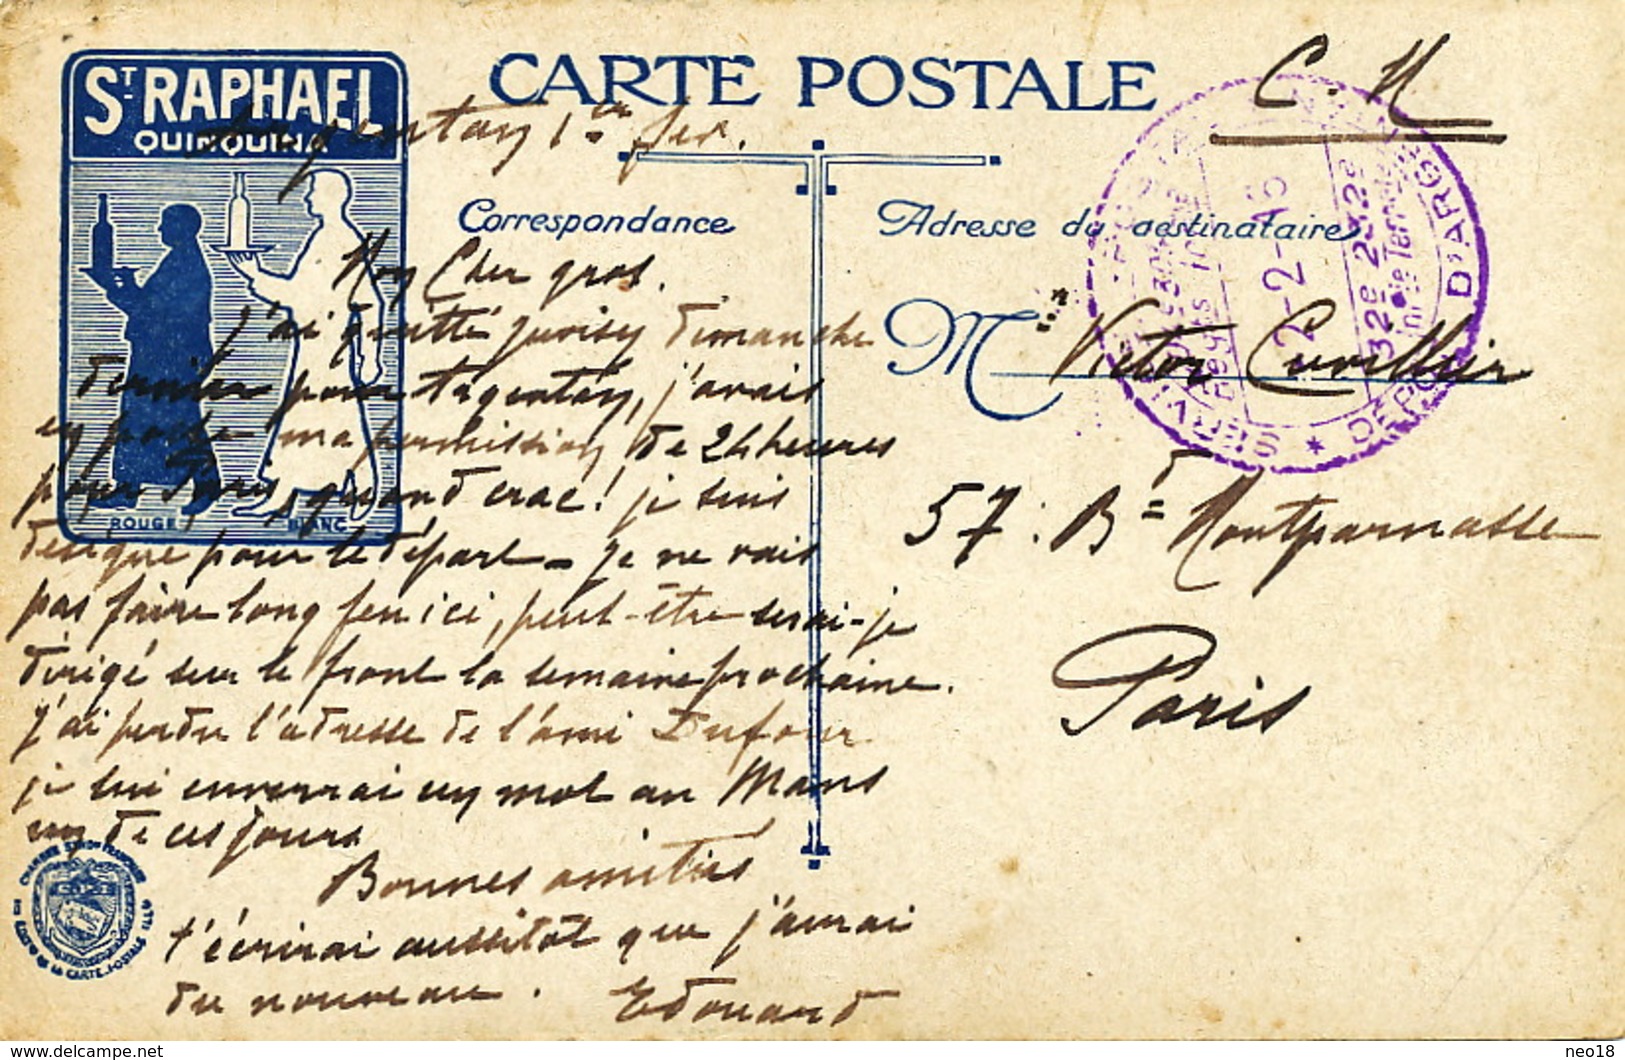 ST RAPHAEL
QUINQUINA
ROUGE BLANC
CARTE POSTALE
Correspondance
Adresse du destinataire
C. M
Argentan 1er fev.
Mon Cher gros.
j'ai quitté Juvisy dimanche
dernier pour Argentan, j'avais
en poche ma permission de 24 heures
pour Paris, quand crac! je suis
désigné pour le départ - je ne vais
pas faire long feu ici, peut-être serai-je
dirigé sur le front la semaine prochaine.
J'ai perdu l'adresse de l'ami Dufour
je lui enverrai un mot au Mans
un de ces jours
Bonnes amitiés
t'écrirai aussitôt que j'aurai
du nouveau. Edouard
M Victor Cuvillier
57: Bd Montparnasse
Paris
2-2-16
32e 232e
DÉPOT D'ARG
* SERVI
CHAMBRE SYNDle FRANÇAISE
DE LA CARTE POSTALE ILLTÉE
neo18